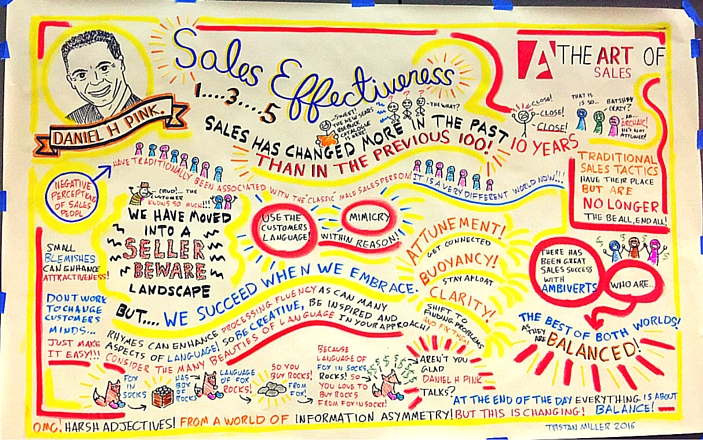 DANIEL H PINK.
Sales Effectiveness
1....3....5
A THE ART OF
SALES
SWEET!
THE NEW SEARS
CATALOG
THE WHAT?
SALES HAS CHANGED MORE IN THE PAST
10 YEARS
THAN IN THE PREVIOUS 100!
CLOSE!
CLOSE!
CLOSE!
THAT IS
IS SO...
BATSH**
CRAZY?
ARCHAIC!
NEGATIVE
PERCEPTIONS
OF SALES
PEOPLE
HAVE TRADITIONALLY BEEN ASSOCIATED WITH THE 'CLASSIC' MALE SALESPERSON
IT IS A VERY DIFFERENT WORLD NOW!!!
TRADITIONAL
SALES TACTICS
HAVE THEIR PLACE
BUT ARE
NO LONGER
THE BE ALL, END ALL!
CRUD!... THE
CUSTOMER
KNOWS SO MUCH!!!
WE HAVE MOVED
INTO A
SELLER
BEWARE
LANDSCAPE
USE THE
CUSTOMERS
LANGUAGE!
MIMICRY
WITHIN REASON!!
ATTUNEMENT!
GET CONNECTED
BUOYANCY!
STAY AFLOAT
CLARITY!
SHIFT TO
FINDING PROBLEMS
AND FIX THEM
SMALL
BLEMISHES
CAN ENHANCE
ATTRACTIVENESS!
DONT WORK
TO CHANGE
CUSTOMERS
MINDS...
JUST MAKE
IT EASY!!!
BUT.... WE SUCCEED WHEN WE EMBRACE.
THERE HAS
BEEN GREAT
SALES SUCCESS
WITH
AMBIVERTS
WHO ARE...
THE BEST OF BOTH WORLDS!
AS THEY ARE
BALANCED!
RHYMES CAN ENHANCE PROCESSING FLUENCY AS CAN MANY
ASPECTS OF LANGUAGE! SO BE CREATIVE, BE INSPIRED AND
CONSIDER THE MANY BEAUTIES OF LANGUAGE IN YOUR APPROACH
FOX
IN
SOCKS
HAS
BOX OF
ROCKS
LANGUAGE
OF FOX
ROCKS!
SO YOU
BUY
ROCKS!
FROM FOX!
BECAUSE
LANGUAGE OF
FOX IN SOCKS
ROCKS! SO
YOU LOVE TO
BUY ROCKS
FROM FOX IN SOCKS!
$$$$$
AREN'T YOU
GLAD
DANIEL H PINK
TALKS?
"AT THE END OF THE DAY EVERYTHING IS ABOUT
BALANCE!
OMG! HARSH ADJECTIVES! FROM A WORLD OF INFORMATION ASYMMETRY! BUT THIS IS CHANGING!
TRISTAN MILLER 2016